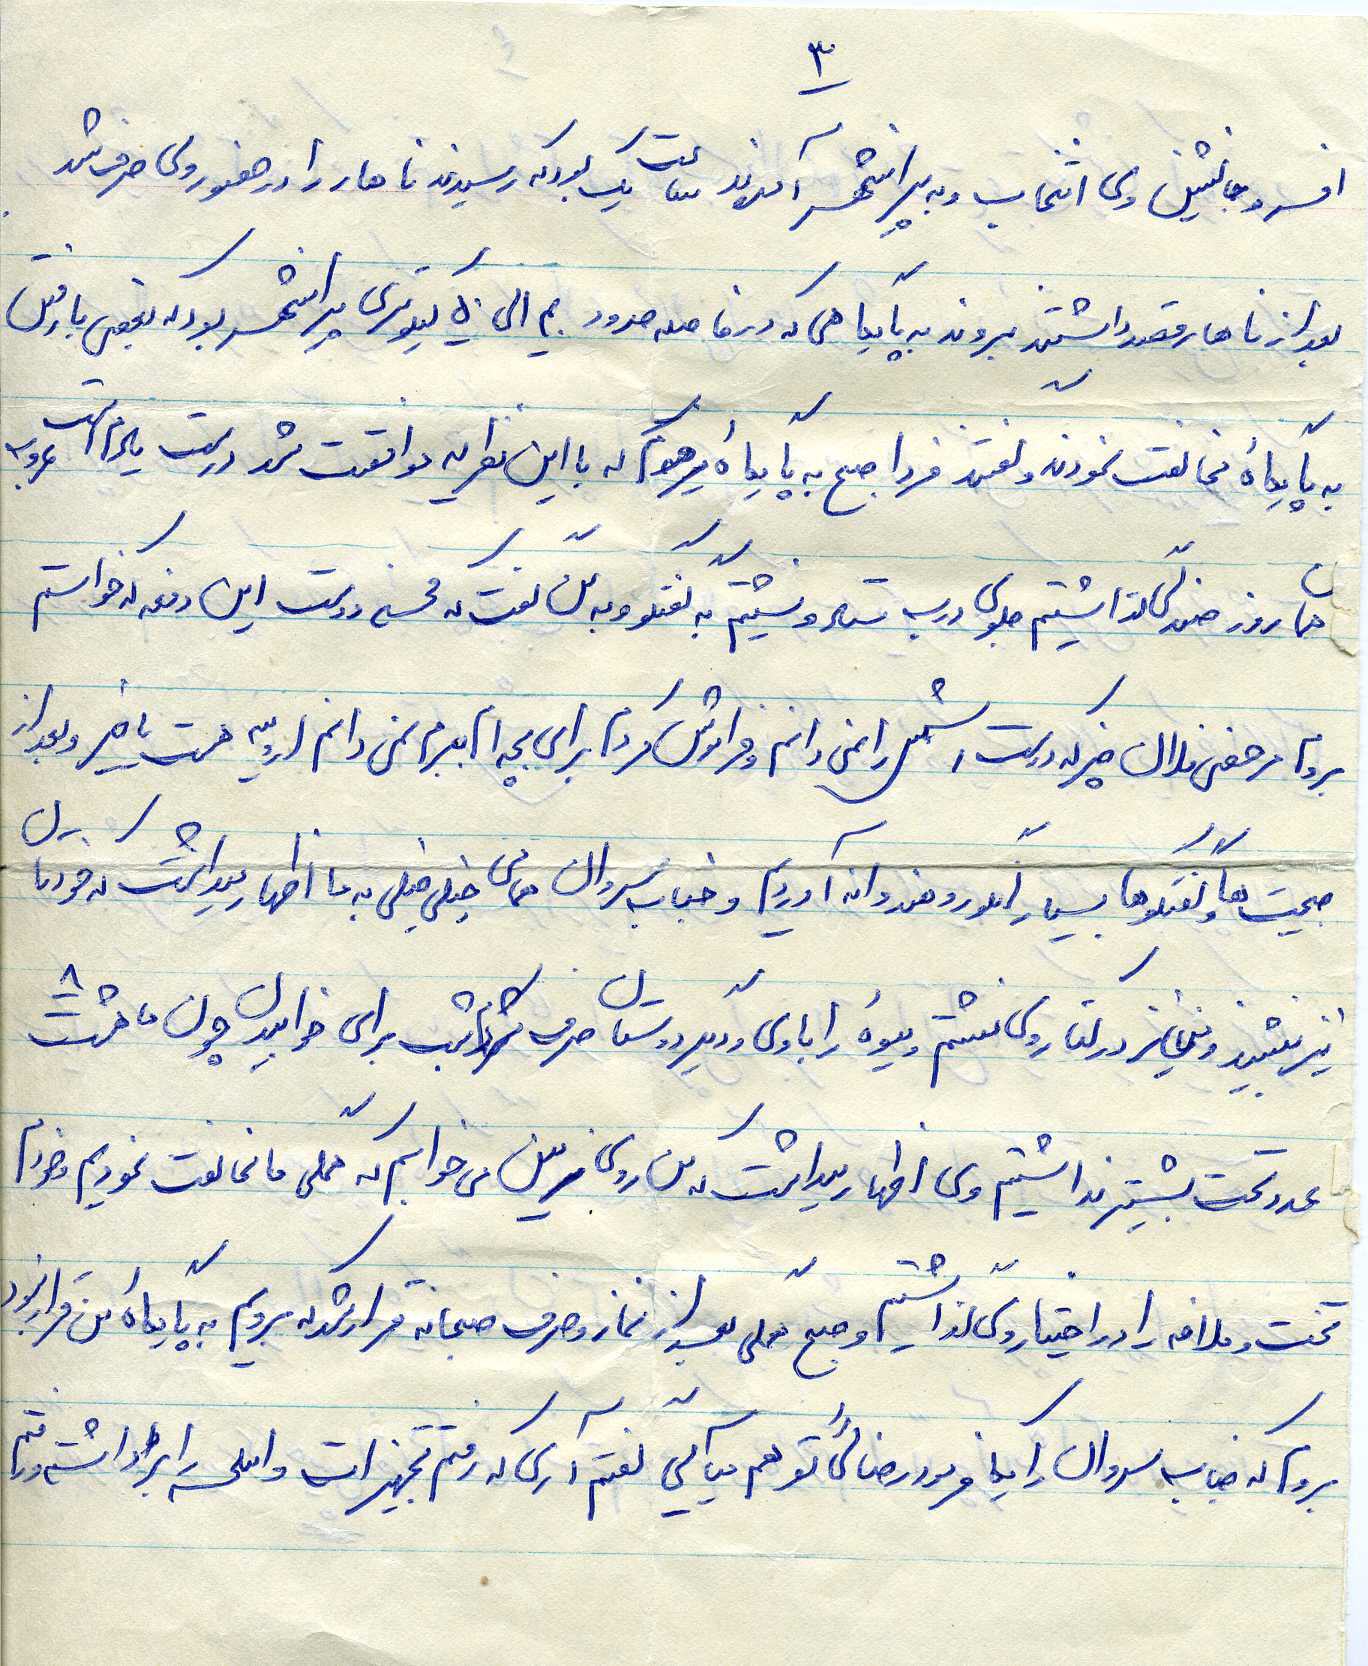 ۳
افسر و جانشین وی انتخاب و به پیرانشهر آمدند ساعت یک بود که رسیدند ناهار را در حضور وی صرف شد
بعد از ناهار قصد داشتند بروند به پایگاهی که در فاصله حدود الی کیلومتری پیرانشهر بود که بعضی با رفتن
به پایگاه مخالفت نمودند و گفتند فردا صبح به پایگاه میرویم که با این نظریه موافقت شد درست یادم است غروب
همان روز صندلی گذاشتیم جلوی درب ستاد و نشستیم به گفتگو و به من گفت که محسنی دوست این دفعه که خواستم
بروم مرخصی فلان چیز که درست اسمش را نمی دانم و فراموش کردم برای بچه ام ببرم نمی دانم ارومیه هست یا خیر و بعد از
صحبت ها و گفتگوها بسیار انگور و هندوانه آوردیم و جناب سروان همامی خیلی خیلی به ما اظهار میداشت که خودتان
نیز بنشینید و من نیز در کنار وی نشستم و میوه را با وی و دیگر دوستان صرف کردیم شب برای خوابیدن چون ما هشت ۸
عدد تخت بیشتر نداشتیم وی اظهار میداشت که من روی زمین می خوابم که همگی ما مخالفت نمودیم و خودم
تخت و ملافه را در اختیار وی گذاشتم و صبح همگی بعد از نماز و صرف صبحانه قرار شد که برویم به پایگاه من قرار نبود
بروم که جناب سروان را یکا فرمود رضائی تو هم میآئی گفتم آری که رفتم تجهیزات و اسلحه را برداشته و رفتم